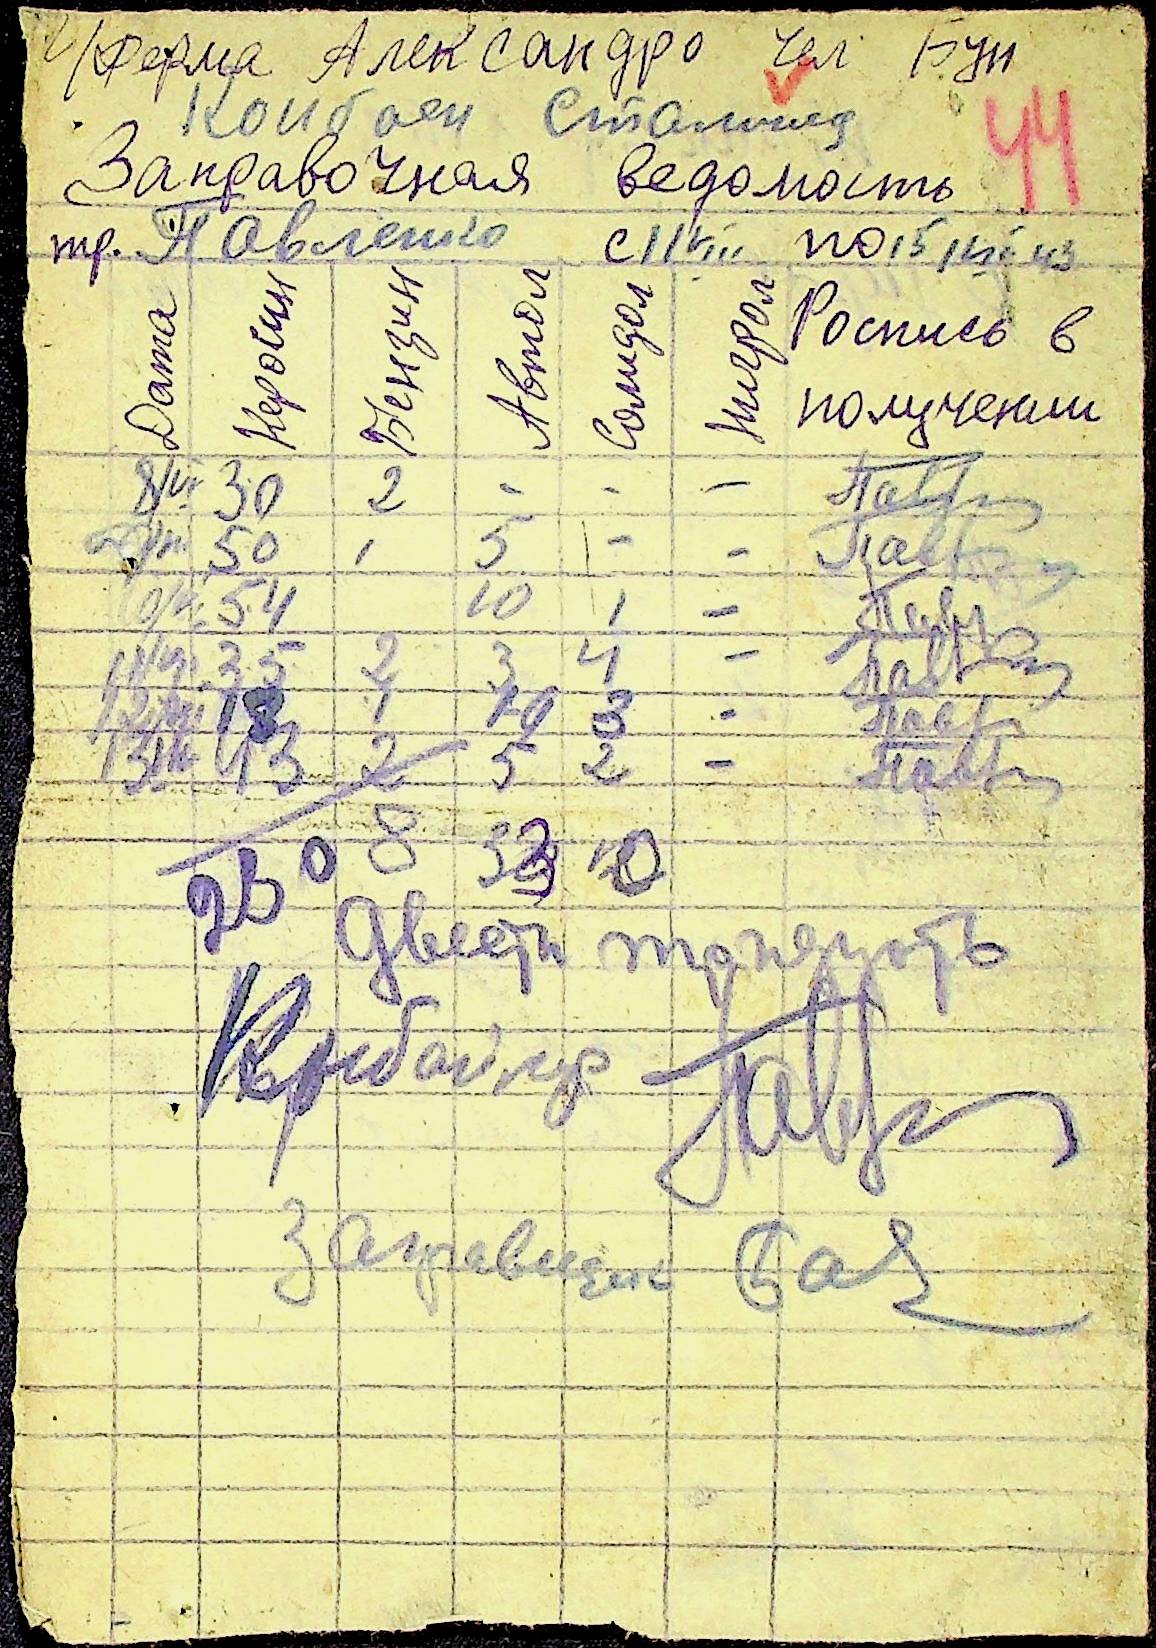 ферма Александро чел Бун
Конбаен Сталинец
44
Заправочная ведомость
тр. Павленко с 11 VIII по 15 VIII 43
Дата Керосин Бензин Автол Солидол Нигрол Роспись в получении
8/VIII 30 2 - - - Павл
50 1 5 - -
10/VIII 54 10 1 -
11/VIII 35 2 3 4 -
12/VIII 18 1 10 3 -
13/VIII 43 2 5 2 -
230 8 33 10
Двести тридцать
Комбайнер
Заправщик